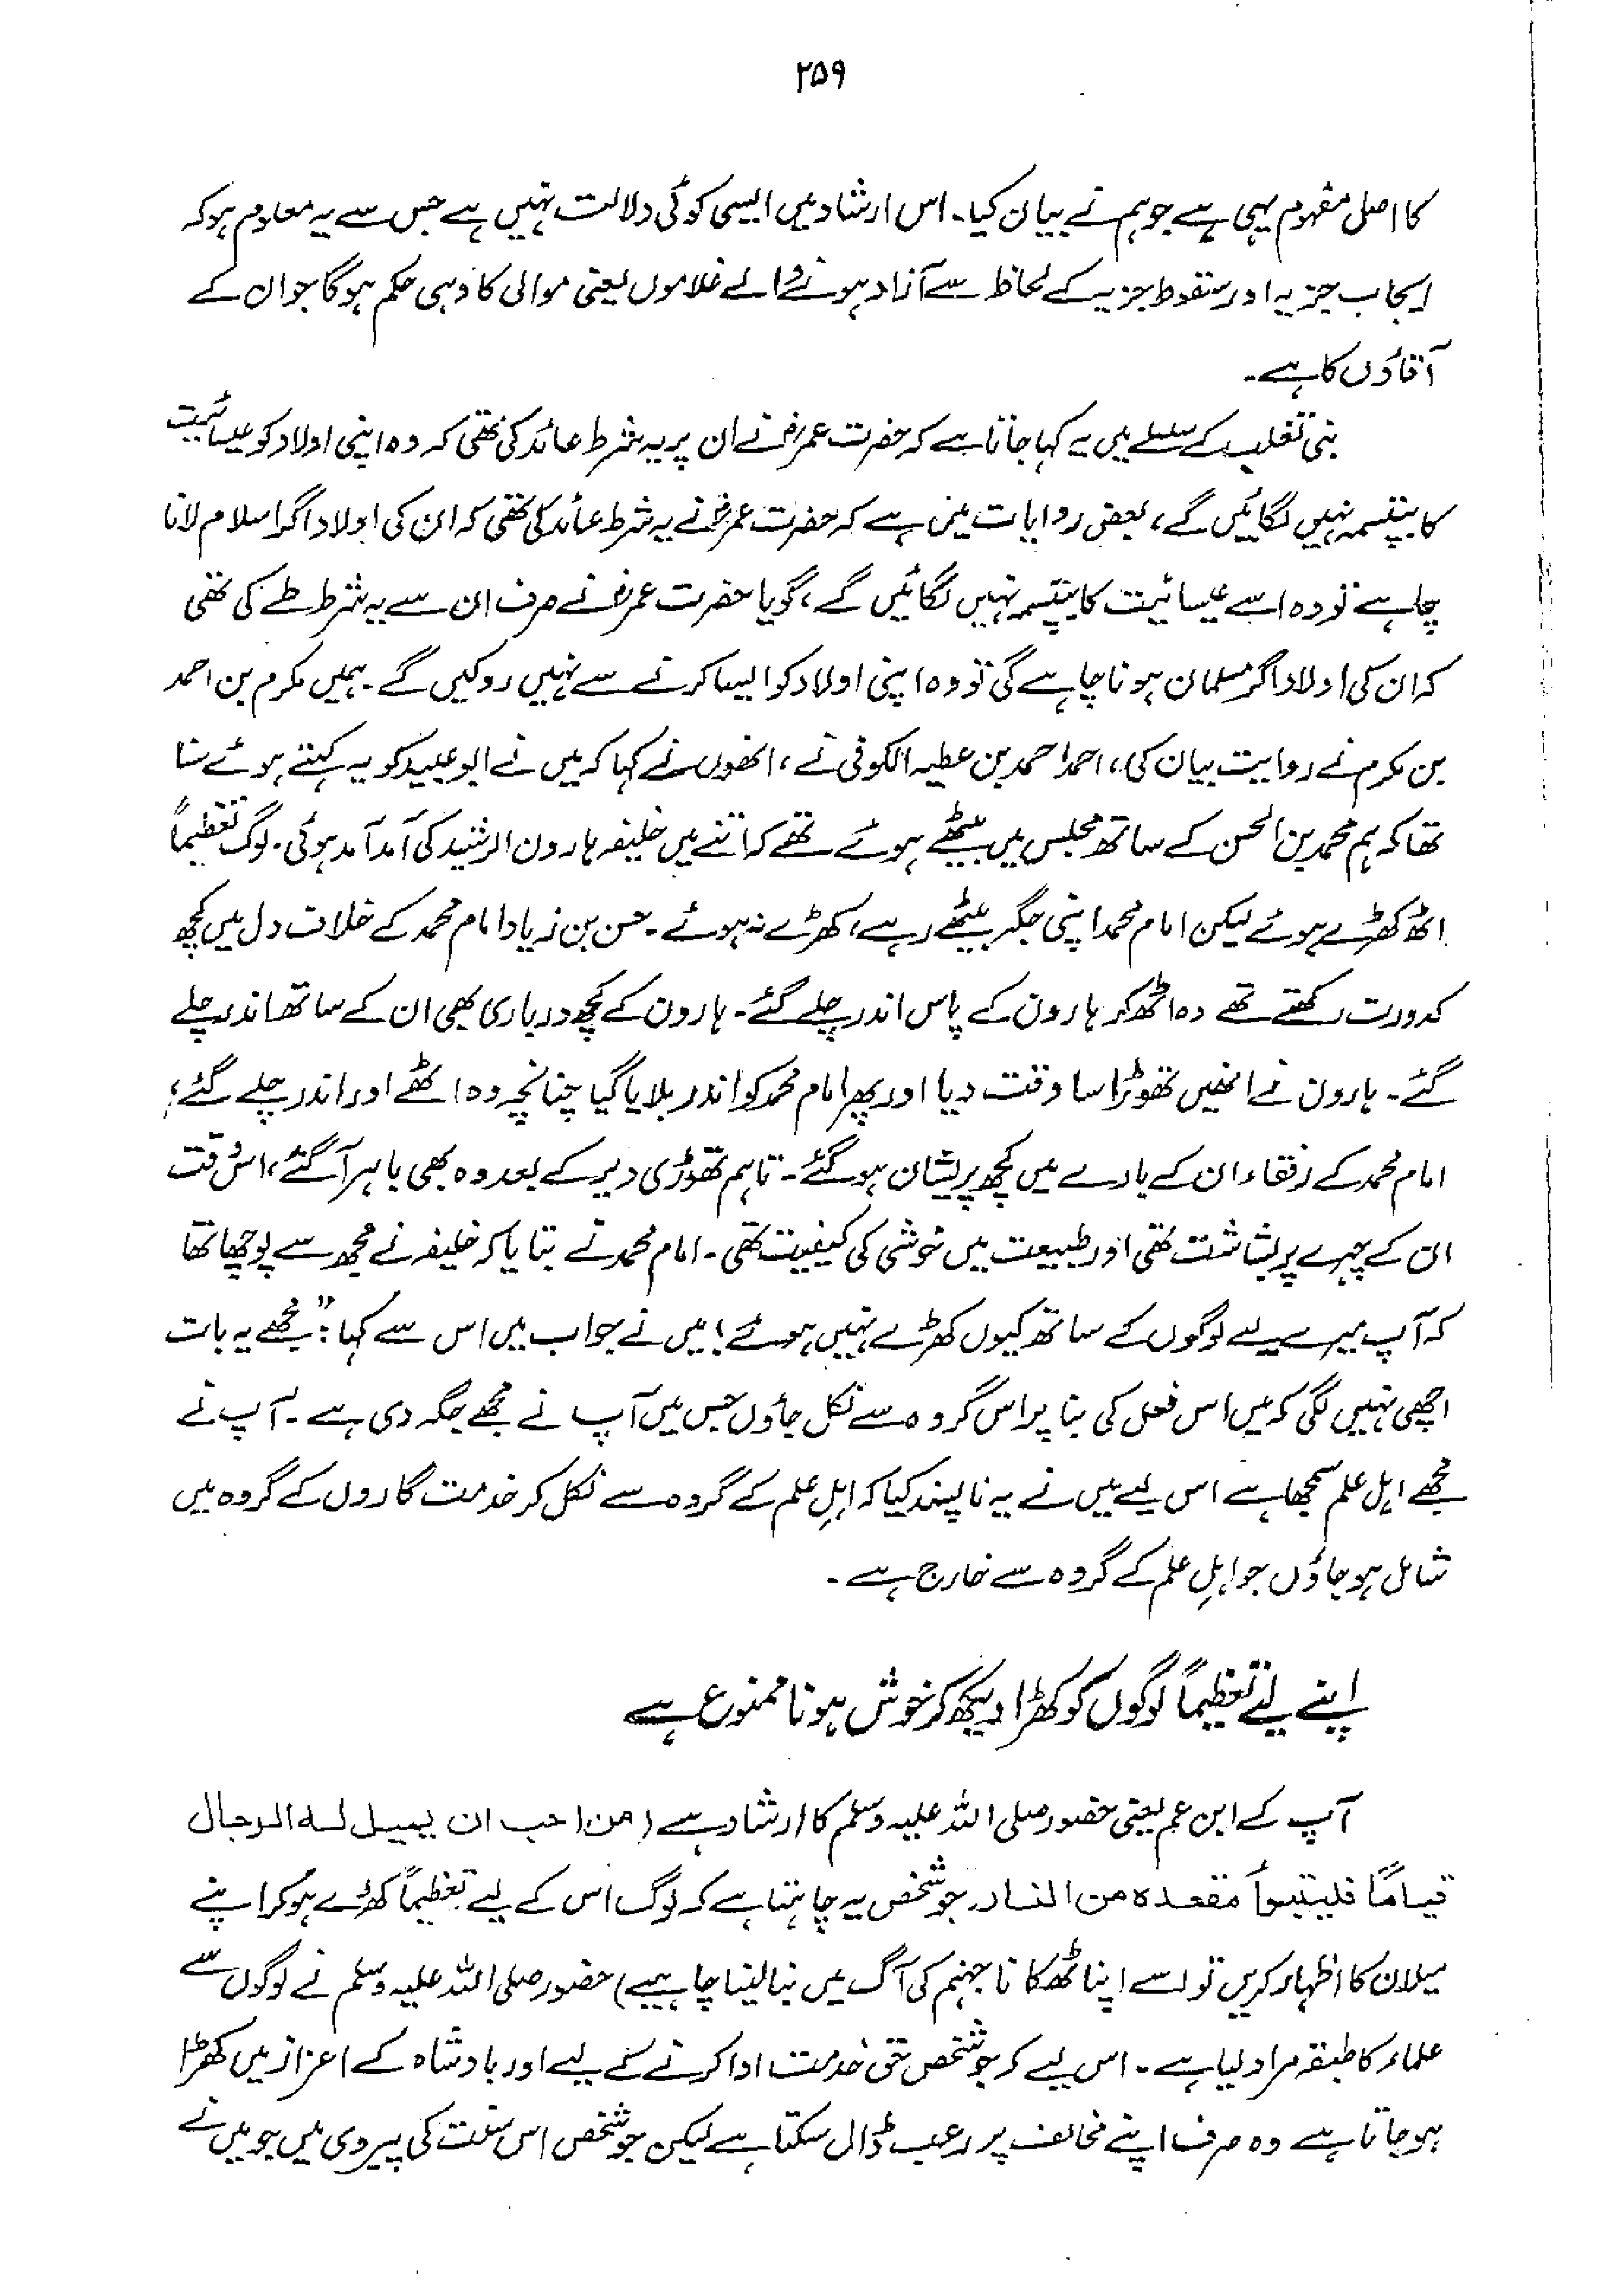 ۲۵۹
کا اصل مفہوم یہی ہے جو ہم نے بیان کیا۔ اس ارشاد میں ایسی کوئی دلالت نہیں ہے جس سے یہ معلوم ہو کہ
ایجاب جزیہ اور سقوط جزیہ کے لحاظ سے آزاد ہونے والے غلاموں یعنی موالی کا وہی حکم ہوگا جو ان کے
آقاؤں کا ہے۔
بنی تغلب کے سلسلے میں یہ کہا جاتا ہے کہ حضرت عمرؓ نے ان پر یہ شرط عائد کی تھی کہ وہ اپنی اولاد کو عیسائیت
کا بپتسمہ نہیں لگائیں گے، بعض روایات میں ہے کہ حضرت عمرؓ نے یہ شرط عائد کی تھی کہ ان کی اولاد اگر اسلام لانا
چاہے تو وہ اسے عیسائیت کا بپتسمہ نہیں لگائیں گے، گویا حضرت عمرؓ نے صرف ان سے یہ شرط طے کی تھی
کہ ان کی اولاد اگر مسلمان ہونا چاہے گی تو وہ اپنی اولاد کو ایسا کرنے سے نہیں روکیں گے۔ ہمیں مکرم بن احمد
بن مکرم نے روایت بیان کی، احمد احمد بن عطیہ الکوفی نے، انھوں نے کہا کہ میں نے ابو عبید کو یہ کہتے ہوئے سنا
تھا کہ ہم محمد بن الحسن کے ساتھ مجلس میں بیٹھے ہوئے تھے کہ اتنے میں خلیفہ ہارون الرشید کی آمد آمد ہوئی۔ لوگ تعظیماً
اٹھ کھڑے ہوئے لیکن امام محمد اپنی جگہ بیٹھے رہے، کھڑے نہ ہوئے۔ حسن بن زیاد امام محمد کے خلاف دل میں کچھ
کدورت رکھتے تھے وہ اٹھ کر ہارون کے پاس اندر چلے گئے۔ ہارون کے کچھ درباری بھی ان کے ساتھ اندر چلے
گئے۔ ہارون نے انھیں تھوڑا سا وقت دیا اور پھر امام محمد کو اندر بلایا گیا چنانچہ وہ اٹھے اور اندر چلے گئے؛
امام محمد کے رفقاء ان کے بارے میں کچھ پریشان ہوگئے۔ تاہم تھوڑی دیر کے بعد وہ بھی باہر آگئے، اس وقت
ان کے چہرے پر بشاشت تھی اور طبیعت میں خوشی کی کیفیت تھی۔ امام محمد نے بتایا کہ خلیفہ نے مجھ سے پوچھا تھا
کہ آپ میرے لیے لوگوں کے ساتھ کیوں کھڑے نہیں ہوئے؛ میں نے جواب میں اس سے کہا: ”مجھے یہ بات
اچھی نہیں لگی کہ میں اس فعل کی بنا پر اس گروہ سے نکل جاؤں جس میں آپ نے مجھے جگہ دی ہے۔ آپ نے
مجھے اہل علم سمجھا ہے اس لیے میں نے یہ ناپسند کیا کہ اہلِ علم کے گروہ سے نکل کر خدمت گاروں کے گروہ میں
شامل ہو جاؤں جو اہلِ علم کے گروہ سے خارج ہے۔
اپنے لیے تعظیماً لوگوں کو کھڑا دیکھ کر خوش ہونا ممنوع ہے
آپ کے ابن عم یعنی حضور صلی اللہ علیہ وسلم کا ارشاد ہے (من احب ان یمیل لہ الرجال
قیامًا فلیتبوأ مقعدہ من النار۔ جو شخص یہ چاہتا ہے کہ لوگ اس کے لیے تعظیماً کھڑے ہو کر اپنے
میلان کا اظہار کریں تو اسے اپنا ٹھکانا جہنم کی آگ میں بنا لینا چاہیے) حضور صلی اللہ علیہ وسلم نے لوگوں سے
علماء کا طبقہ مراد لیا ہے۔ اس لیے کہ جو شخص حق خدمت ادا کرنے کے لیے اور بادشاہ کے اعزاز میں کھڑا
ہو جاتا ہے وہ صرف اپنے مخالف پر رعب ڈال سکتا ہے لیکن جو شخص اس سنت کی پیروی میں جو میں نے